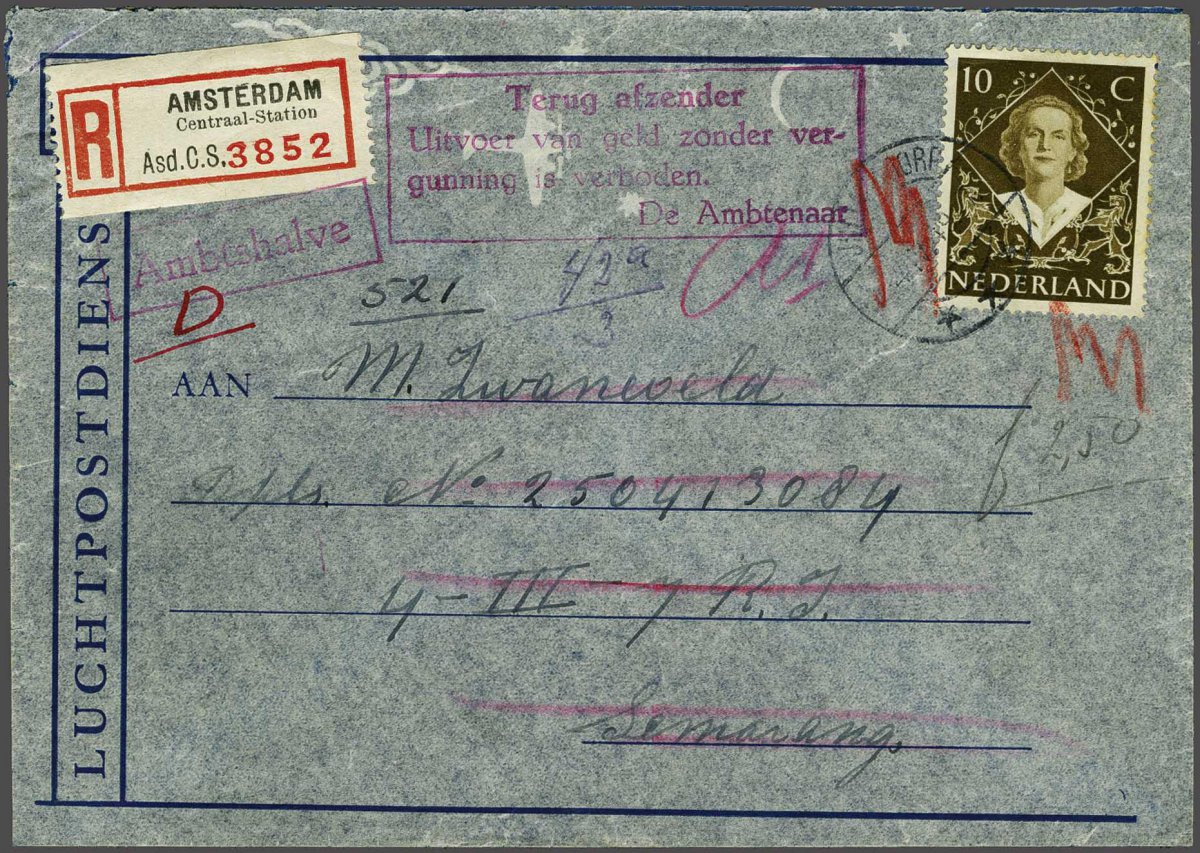 AMSTERDAM
Centraal-Station
R
Asd.C.S. 3852
Terug afzender
Uitvoer van geld zonder ver-
gunning is verboden.
De Ambtenaar
10 C
NEDERLAND
Ambtshalve
D
521
42a
3
LUCHTPOSTDIENST
AAN M. Zwaneveld
No 250413084
4-III 7 R.I.
Semarang.
f 2,50